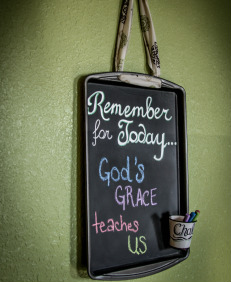 Remember
for Today...
God's
GRACE
teaches
US